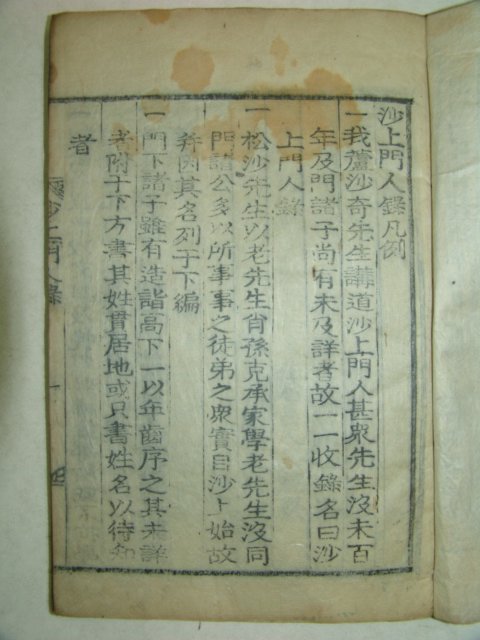 沙上門人錄凡例
一我蘆沙奇先生講道沙上門人甚衆先生沒未百
年及門諸子尚有未及詳者故一一收錄名曰沙
上門人錄
一松沙先生以老先生肖孫克承家學老先生沒同
門諸公多以所事事之徒弟之衆實自沙上始故
并因其名列于下編
一門下諸子雖有造詣高下一以年齒序之其未詳
者附于下方書其姓貫居地或只書姓名以待知
者
沙上門人錄
一